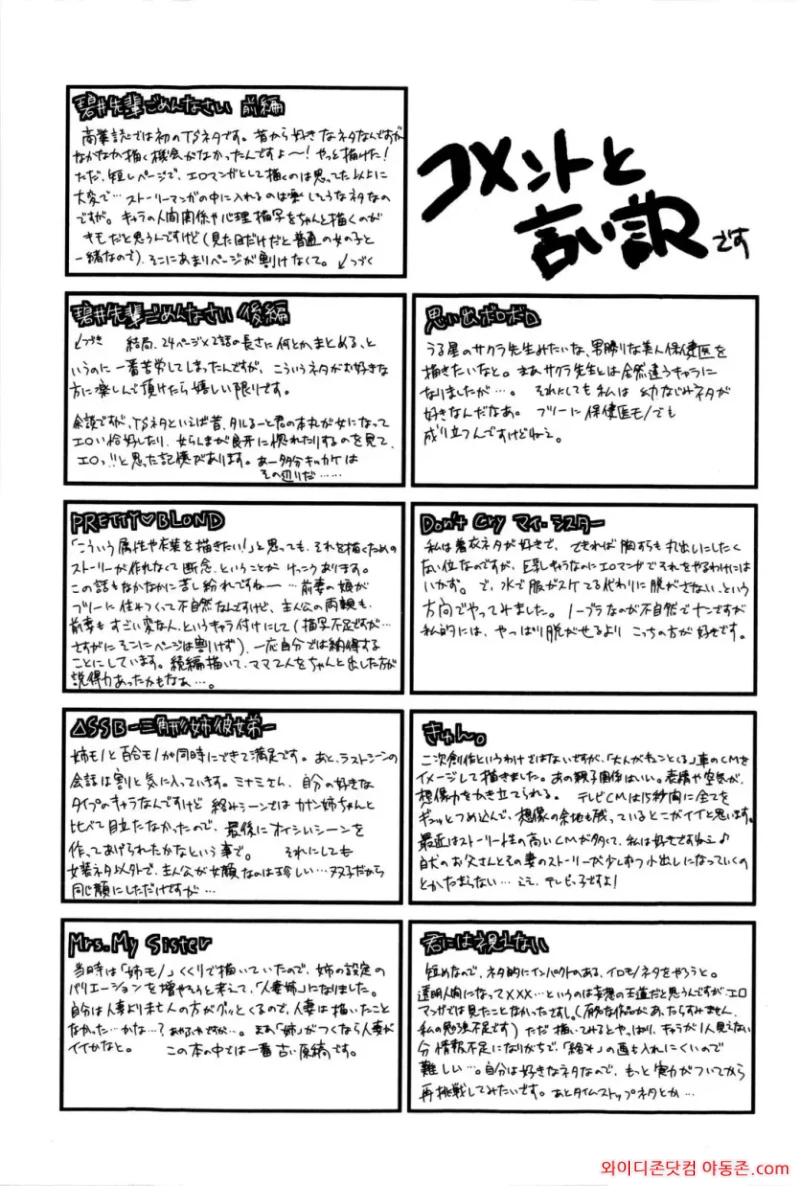 コメントと
言い訳です
碧井先輩ごめんなさい 前編
商業誌では初のTSネタです。昔から好きなネタなんですが
なかなか描く機会がなかったんですよ〜！やっと描けた！
ただ、短いページで、エロマンガとして描くのは思ってた以上に
大変で…ストーリーマンガの中に入れるのは楽しそうなネタなの
ですが。キャラの人間関係や心理描写をちゃんと描くのが
キモだと思うんですけど（見た目だけだと普通の女の子と
一緒なので）、そこにあまりページが割けなくて。↓つづく
碧井先輩ごめんなさい 後編
↓つづき 結局、24ページ×2話の長さに何とかまとめる、と
いうのに一番苦労してしまったんですが、こういうネタがお好きな
方に楽しんで頂けたら嬉しい限りです。
余談ですが、TSネタといえば昔、タルるート君の本丸が女になって
エロい恰好したり、女らんまが良牙に惚れたりするのを見て、
エロッ!!と思った記憶があります。あー多分キッカケは
その辺りだ……
思い出ボロボロ
うる星のサクラ先生みたいな、男勝りな美人保健医を
描きたいなと。まあサクラ先生とは全然違うキャラに
なりましたが…。それにしても私は幼なじみネタが
好きなんだなあ。フツーに保健医モノでも
成り立つんですけどねえ。
PRETTY♥BLOND
「こういう属性や衣装を描きたい！」と思っても、それを描くための
ストーリーが作れなくて断念、ということがけっこうあります。
この話もなかなかに苦し紛れですね〜…前妻の娘が
フツーに住みつくって不自然なんですけど、主人公の両親も
前妻もすごい変な人、というキャラ付けにして（描写不足ですが…
さすがにそこにページは割けず）、一応自分では納得する
ことにしています。続編描いて、ママ2人をちゃんと出した方が
説得力あったかもなあ…。
Don't Cry マイ・シスター
私は着衣ネタが好きで、できれば胸すらも丸出しにしたく
ない位なのですが、巨乳キャラなのにエロマンガでそれをやるわけには
いかず。で、水で服がスケてる代わりに脱がさない、という
方向でやってみました。ノーブラなのが不自然でナンですが
私的には、やっぱり脱がせるよりこっちの方が好きです。
△SSB-三角形姉彼女弟-
姉モノと百合モノが同時にできて満足です。あと、ラストシーンの
会話は割と気に入っています。ミナミさん、自分の好きな
タイプのキャラなんですけど絡みシーンではカナン姉ちゃんと
比べて目立たなかったので、最後にオイシイシーンを
作ってあげられたかなという事で。それにしても
女装ネタ以外で、主人公が女顔なのは珍しい…双子だから
同じ顔にしただけですが…
きゅん。
二次創作というわけではないですが、「大人がキュンとくる」車のCMを
イメージして描きました。あの親子関係はいい。表情や空気が、
想像力をかき立てられる。テレビCMは15秒間に全てを
ギュッとつめ込んで、想像の余地も残っているとこがイイと思います。
最近はストーリー性の高いCMが多くて、私は好きですねえ♪
白犬のお父さんとその妻のストーリーが少しずつ小出しになっていくの
とかたまらない…ええ、テレビっ子ですよ！
Mrs. My Sister
当時は「姉モノ」くくりで描いていたので、姉の設定の
バリエーションを増やそうと考えて、「人妻姉」になりました。
自分は人妻より未亡人の方がグッとくるので、人妻は描いたこと
なかった…かな…？まあ「姉」がつくなら人妻が
イイかなと。この本の中では一番古い原稿です。
君には視えない
短めなので、ネタ的にインパクトのある、イロモノネタをやろうと。
透明人間になってXXX…というのは妄想の王道だと思うんですが、エロ
マンガでは見たことなかったですし。（有名な作品があったらすみません、
私の勉強不足です）ただ描いてみるとやっぱり、キャラが1人見えない
分情報不足になりがちで、「絡み」の画も入れにくいので
難しい…。自分は好きなネタなので、もっと実力がついてから
再挑戦してみたいです。あとタイムストップネタとか…
와이디존닷컴 야동존.com